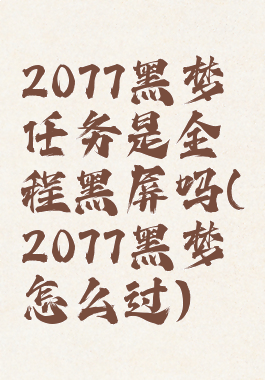 2077黑梦
任务是全
程黑屏吗(
2077黑梦
怎么过)